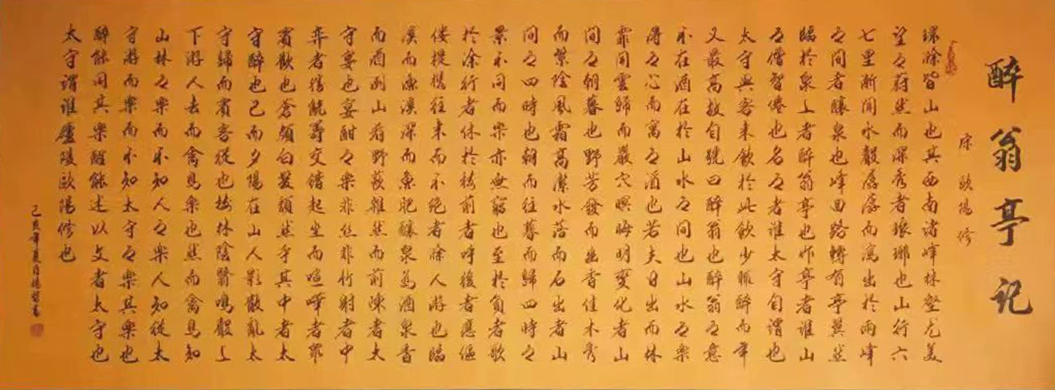 醉翁亭记
宋 欧陽修
環滁皆山也其西南諸峰林壑尤美
望之蔚然而深秀者琅琊也山行六
七里漸聞水聲潺潺而瀉出於兩峰
之間者釀泉也峰回路轉有亭翼然
臨於泉上者醉翁亭也作亭者誰山
之僧智僊也名之者誰太守自謂也
太守與客來飲於此飲少輒醉而年
又最高故自號曰醉翁也醉翁之意
不在酒在於山水之間也山水之樂
得之心而寓之酒也若夫日出而林
霏開雲歸而巖穴暝晦明變化者山
間之朝暮也野芳發而幽香佳木秀
而繁陰風霜高潔水落而石出者山
間之四時也朝而往暮而歸四時之
景不同而樂亦無窮也至於負者歌
於塗行者休於樹前者呼後者應傴
僂提攜往來而不絕者滁人游也臨
溪而漁溪深而魚肥釀泉為酒泉香
而酒洌山肴野蔌雜然而前陳者太
守宴也宴酣之樂非絲非竹射者中
弈者勝觥籌交錯起坐而喧嘩者眾
賓歡也蒼顏白髮頹然乎其中者太
守醉也已而夕陽在山人影散亂太
守歸而賓客從也樹林陰翳鳴聲上
下游人去而禽鳥樂也然而禽鳥知
山林之樂而不知人之樂人知從太
守游而樂而不知太守之樂其樂也
醉能同其樂醒能述以文者太守也
太守謂誰廬陵歐陽修也
己亥年夏月